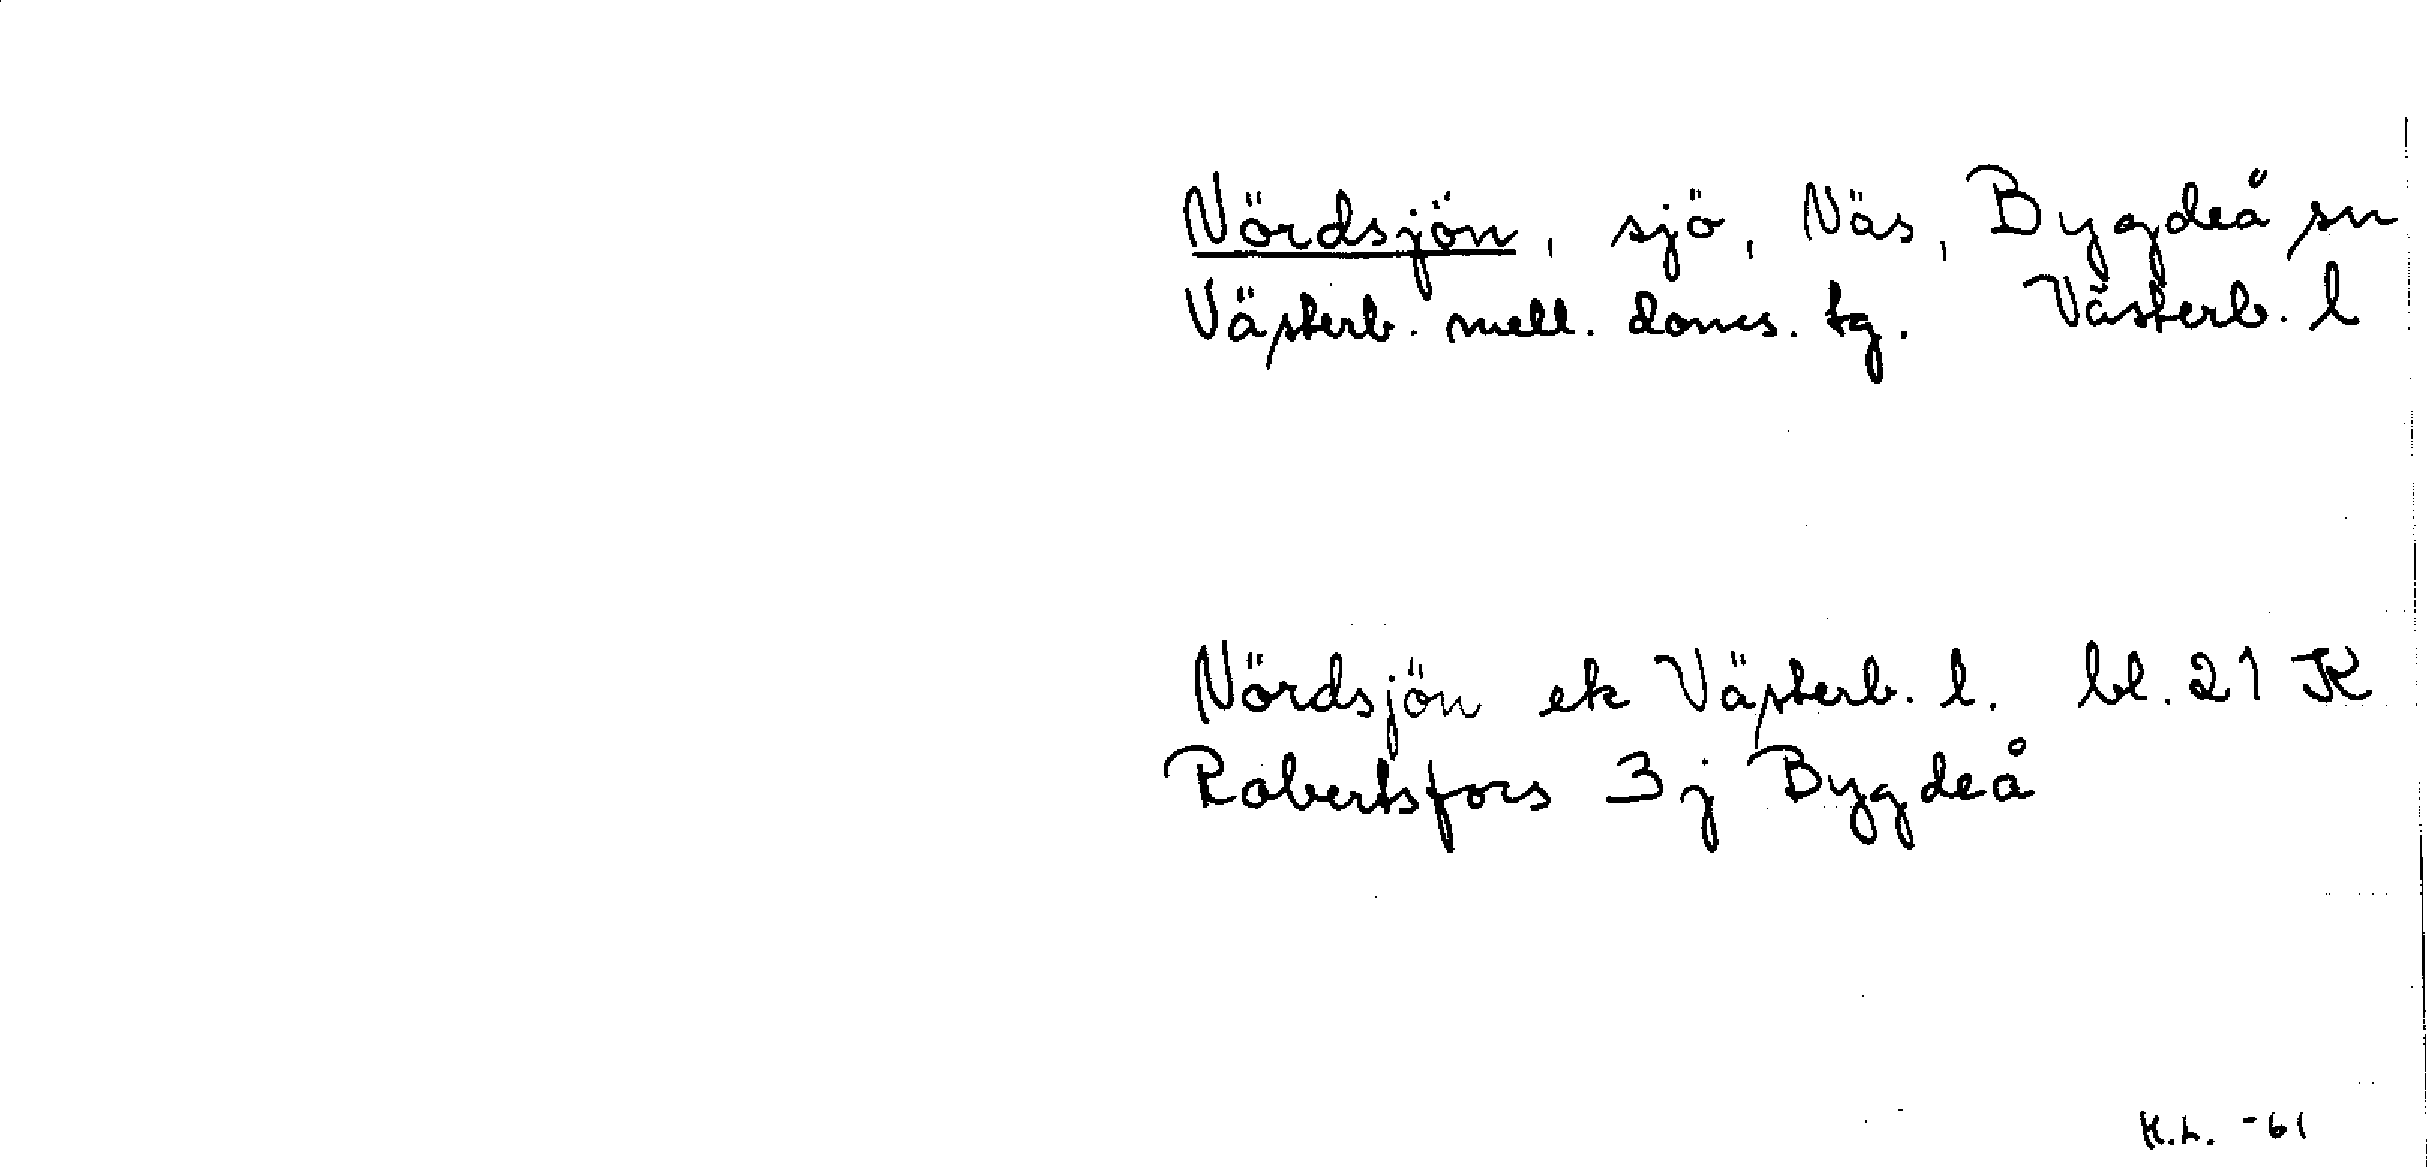 Nördsjön, sjö, Näs, Bygdeå sn
Västerb. mell. doms. tg. Västerb. l
Nördsjön ek Västerb. l. bl. 21 K
Robertsfors 3j Bygdeå
H.L. -61